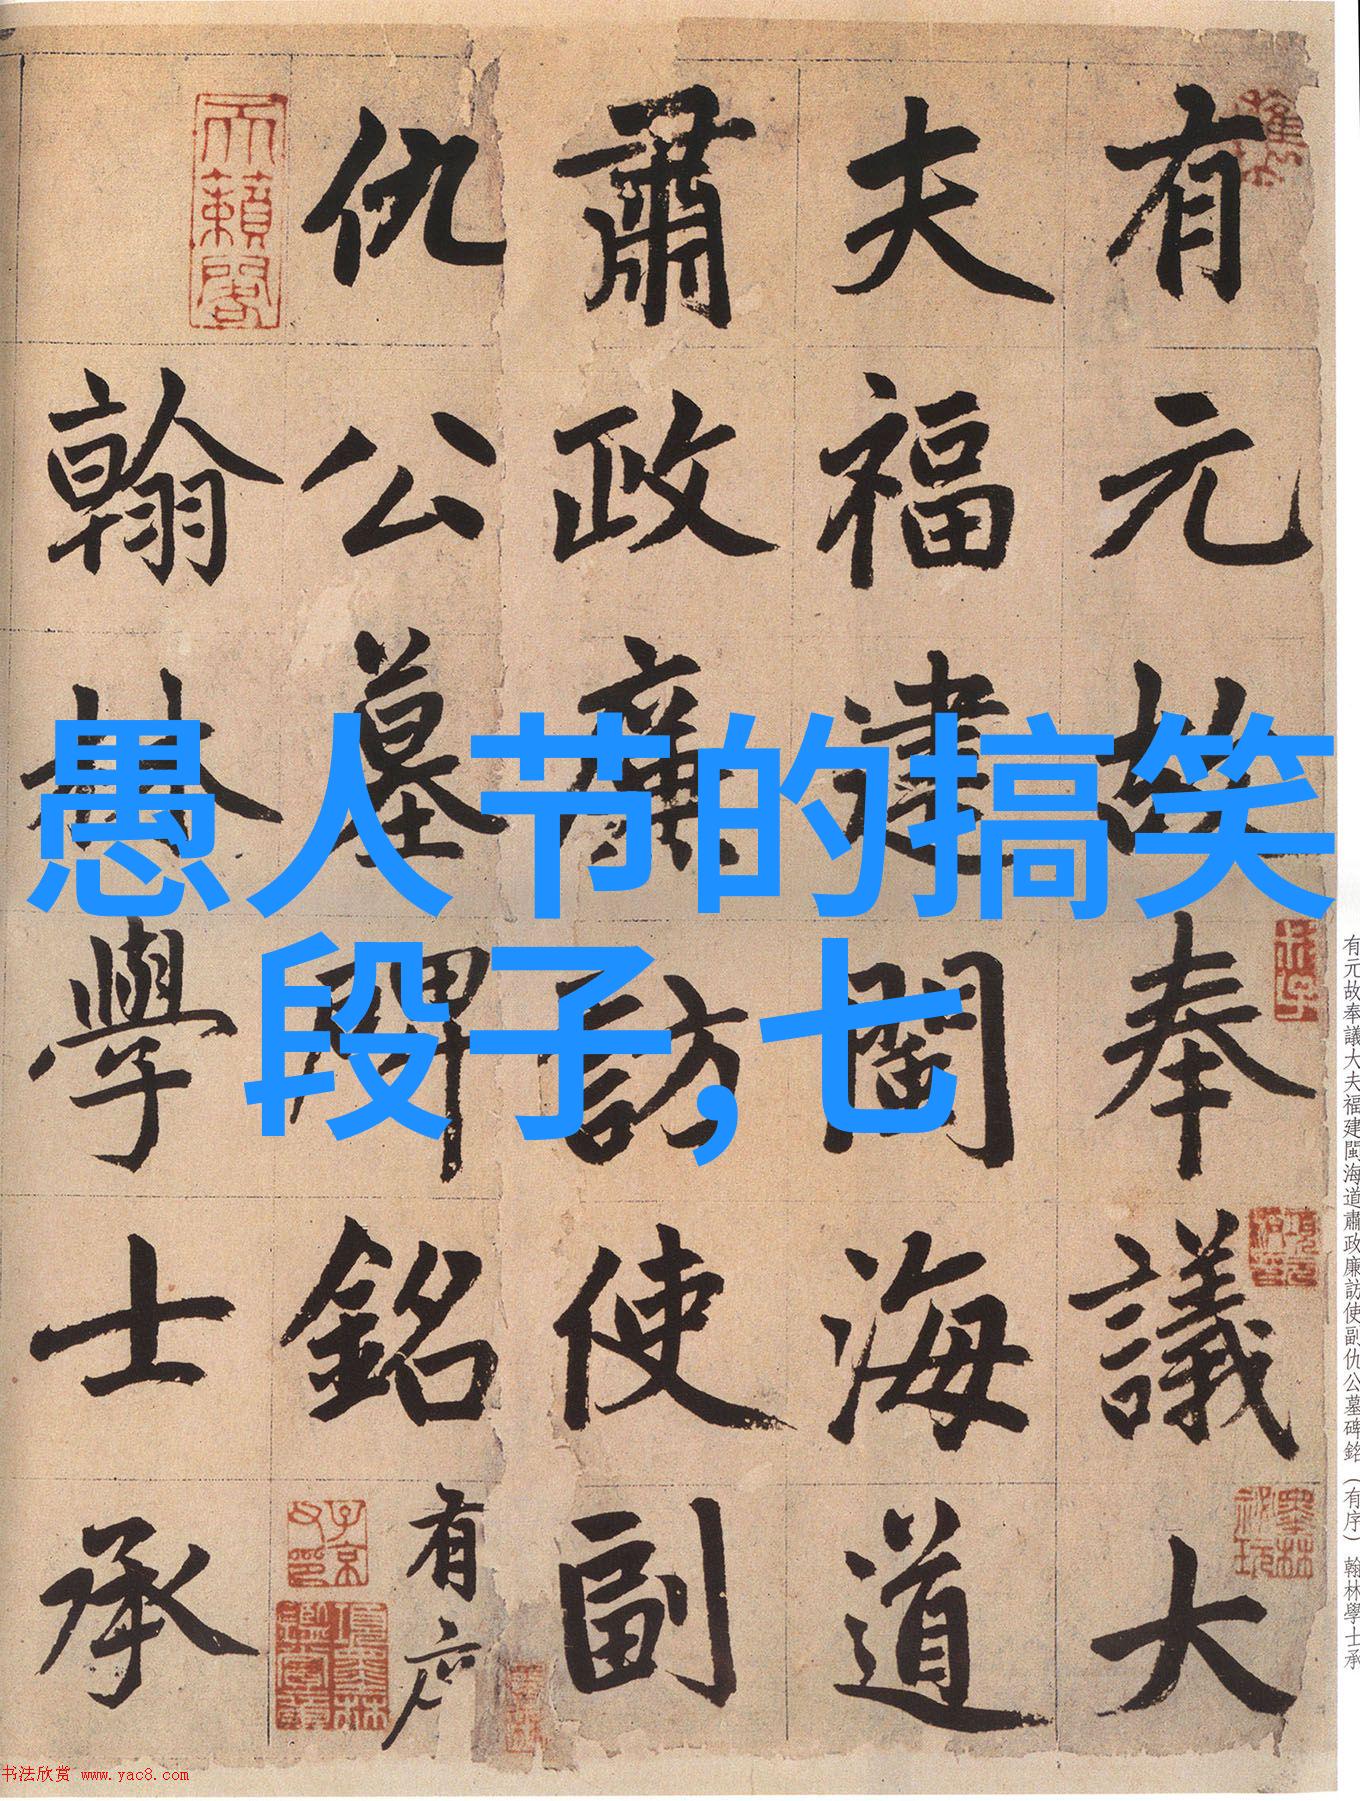 有元故奉議大
夫福建閩海道
肅政廉訪使副
仇公墓碑銘有序
翰林學士承
愚人节的搞笑
段子,七
天籟閣
子京父印
項墨林鑑賞章
有元故奉議大夫福建閩海道肅政廉訪使副仇公墓碑銘（有序）翰林學士承
书法欣赏 www.yac8.com